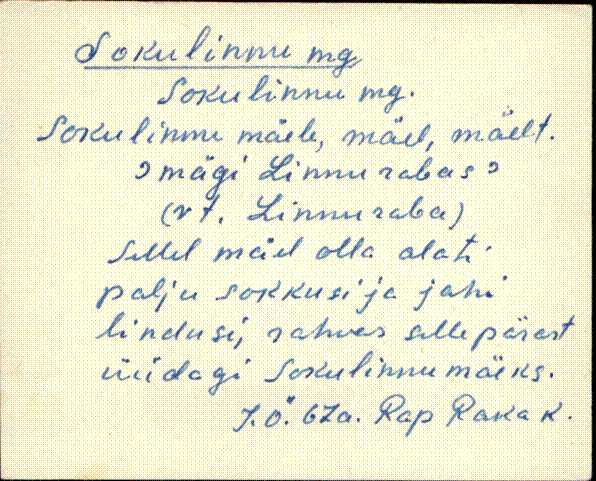 Sokulinnu mg
Sokulinnu mg.
Sokulinnu mäele, mäel, mäelt.
›mägi Linnurabas›
(vt. Linnuraba)
Sellel mäel olla alati
palju sokkusi ja jahi
lindusi, rahvas sellepärast
üüdagi Sokulinnumäeks.
J.Õ. 67a. Rap Raka k.